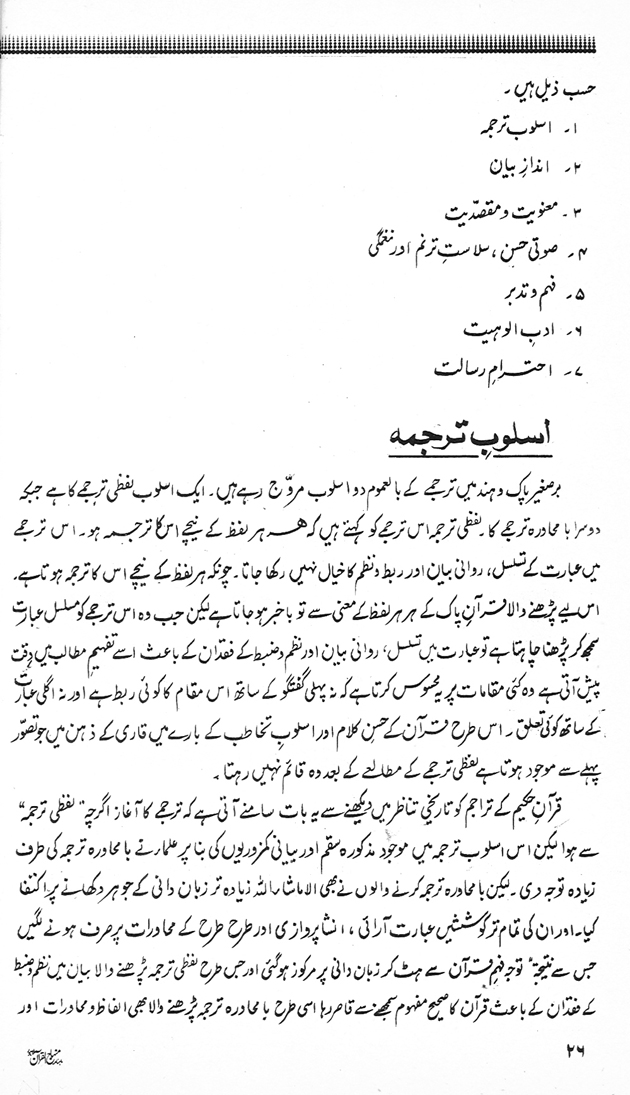 حسب ذیل ہیں۔
۱۔ اسلوب ترجمہ
۲۔ اندازِ بیان
۳۔ معنویت و مقصدّیت
۴۔ صوتی حسن، سلاستِ ترنم اور نغمگی
۵۔ فہم و تدبر
۶۔ ادبِ الوہیت
۷۔ احترامِ رسالت
اسلوبِ ترجمہ
برصغیر پاک و ہند میں ترجمے کے بالعموم دو اسلوب مروّج رہے ہیں۔ ایک اسلوب لفظی ترجمے کا ہے جبکہ
دوسرا بامحاورہ ترجمے کا۔ لفظی ترجمہ اس ترجمے کو کہتے ہیں کہ ہر ہر لفظ کے نیچے اس کا ترجمہ ہو۔ اس ترجمے
میں عبارت کے تسلسل، روانی بیان اور ربط و نظم کا خیال نہیں رکھا جاتا۔ چونکہ ہر لفظ کے نیچے اس کا ترجمہ ہوتا ہے۔
اس لیے پڑھنے والا قرآنِ پاک کے ہر ہر لفظ کے معنی سے تو باخبر ہو جاتا ہے لیکن جب وہ اس ترجمے کو مسلسل عبارت
سمجھ کر پڑھنا چاہتا ہے تو عبارت میں تسلسل، روانی بیان اور نظم و ضبط کے فقدان کے باعث اسے تفہیمِ مطالب میں دِقت
پیش آتی ہے وہ کئی مقامات پر یہ محسوس کرتا ہے کہ نہ پہلی گفتگو کے ساتھ اس مقام کا کوئی ربط ہے اور نہ اگلی عبارت
کے ساتھ کوئی تعلق۔ اس طرح قرآن کے حسنِ کلام اور اسلوبِ تخاطب کے بارے میں قاری کے ذہن میں جو تصوّر
پہلے سے موجود ہوتا ہے لفظی ترجمے کے مطالعے کے بعد وہ قائم نہیں رہتا۔
قرآنِ حکیم کے تراجم کو تاریخی تناظر میں دیکھنے سے یہ بات سامنے آتی ہے کہ ترجمے کا آغاز اگرچہ "لفظی ترجمہ"
سے ہوا لیکن اس اسلوب ترجمہ میں موجود مذکورہ سقم اور بیانی کمزوریوں کی بنا پر علماء نے بامحاورہ ترجمہ کی طرف
زیادہ توجہ دی۔ لیکن بامحاورہ ترجمہ کرنے والوں نے بھی الا ماشاء اللہ زیادہ تر زبان دانی کے جوہر دکھانے پر اکتفا
کیا۔ اور ان کی تمام تر کوششیں عبارت آرائی، انشا پردازی اور طرح طرح کے محاورات پر صرف ہونے لگیں
جس سے نتیجۃً توجہ فہمِ قرآن سے ہٹ کر زبان دانی پر مرکوز ہوگئی اور جس طرح لفظی ترجمہ پڑھنے والا بیان میں نظم و ضبط
کے فقدان کے باعث قرآن کا صحیح مفہوم سمجھنے سے قاصر رہا اسی طرح بامحاورہ ترجمہ پڑھنے والا بھی الفاظ و محاورات اور
۲۶